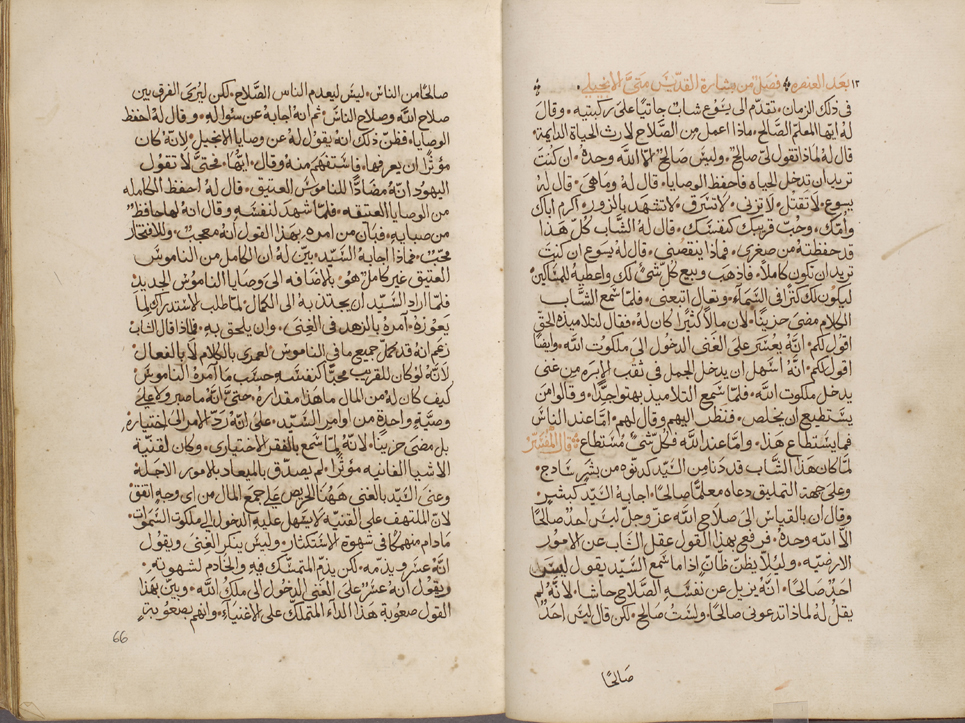 ١٢ بعد العنصره فصل من بشارة القديس متى الانجيلي
في ذلك الزمان، تقدم الى يسوع شاب جاثيا على ركبتيه، وقال
له ايها المعلم الصالح، ماذا اعمل من الصلاح لارث الحياة الدايمة،
قال له لماذا تقول لي صالح، وليس صالح الا الله وحده، ان كنت
تريد ان تدخل الحياه فاحفظ الوصايا، قال له وما هي، قال له
يسوع، لا تقتل، لا تزني، لا تسرق، لا تشهد بالزور، اكرم اباك
وامك، وحب قريبك كنفسك، قال له الشاب كل هذا
قد حفظته من صغري، فماذا ينقصني، قال له يسوع ان كنت
تريد ان تكون كاملا، فاذهب وبيع كل شي لك واعطيه للمساكين
ليكون لك كنزا في السماء، وتعال اتبعني، فلما سمع الشاب
الكلام مضى حزينا، لان مالا كثيرا كان له، فقال لتلاميذه الحق
اقول لكم، انه يعسر على الغني الدخول الى ملكوت الله، وايضا
اقول لكم، انه اسهل ان يدخل الجمل في ثقب الابره من غنى
يدخل ملكوت الله، فلما سمع التلاميذ بهتوا جدا، وقالوا من
يستطيع ان يخلص، فنظر اليهم وقال لهم، اما عند الناس
فما يستطاع هذا، واما عند الله فكل شي مستطاع قال المفسر
لما كان هذا الشاب قد دنا من السيد كدنوه من بشر سادج،
وعلى جهة التمليق دعاه معلما صالحا، اجابه السيد كبشر،
وقال ان بالقياس الى صلاح الله عز وجل ليس احد صالحا
الا الله وحده، فرفع بهذا القول عقل الشاب عن الامور
الارضيه، وليلا يظن ظان اذا ما سمع السيد يقول ليس
احد صالحا، انه يزيل عن نفسه الصلاح حاشا، لانه لم
يقل له لماذا تدعوني صالحا، ولست صالح، لكن قال ليس احد
صالحا
صالحا من الناس، ليس ليعدم الناس الصلاح، لكن ليرى الفرق بين
صلاح الله وصلاح الناس، ثم انه اجابه عن سئواله، وقال له احفظ
الوصايا، فظن ذلك انه يقول له عن وصايا الانجيل، لانه كان
مؤثرا ان يعرفها، فاستفهم منه وقال، ايها، فحتى لا تقول
اليهود انه مضادا للناموس العتيق، قال له احفظ الكامله
من الوصايا العتيقه، فلما شهد لنفسه وقال انه لها حافظ
من صبايه، فبان من امره بهذا القول انه معجب، وللافتخار
محب، فماذا اجابه السيد، بين له ان الكامل من الناموس
العتيق غير كامل هو، بالاضافه الى وصايا الناموس الجديد
فلما اراد السيد ان يجتذبه الى الكمال، لما طلب لاستدراك لما
يعوزه، امره بالزهد في الغنى، وان يلحق به، فاذا قال الشاب
زعم انه قد كمل جميع ما في الناموس لعمري بالكلام لا بالفعال
لانه لو كان للقريب محبا كنفسه حسب ما امره الناموس
كيف كان له من المال ما هذا مقداره، حتى انه ما صبر ولا على
وصية واحدة من اوامر السيد، على انه رد الامر الى اختياره
بل مضى حزينا، لانه لما سمع بالفقر الاختياري، وكان لقنية
الاشيا الفانيه مؤثرا، لم يصدق بالميعاد بالامور الاجله
وعنى السيد بالغني ههنا الحريص على جمع المال من اي وجه اتفق
لان الملتهف على القنية لا يسهل عليه الدخول الى ملكوت السموات
ما دام منهمكا في شهوة الاستكثار، وليس ينكر الغنى ويقول
انه عسر ويذمه، لكن يذم المتمسك فيه والخادم لشهوته،
ويقول انه عسر على الغني الدخول الى ملك الله، وبين بهذا
القول صعوبة هذا الداء المتملك على الاغنياء، وانهم بصعوبة
66